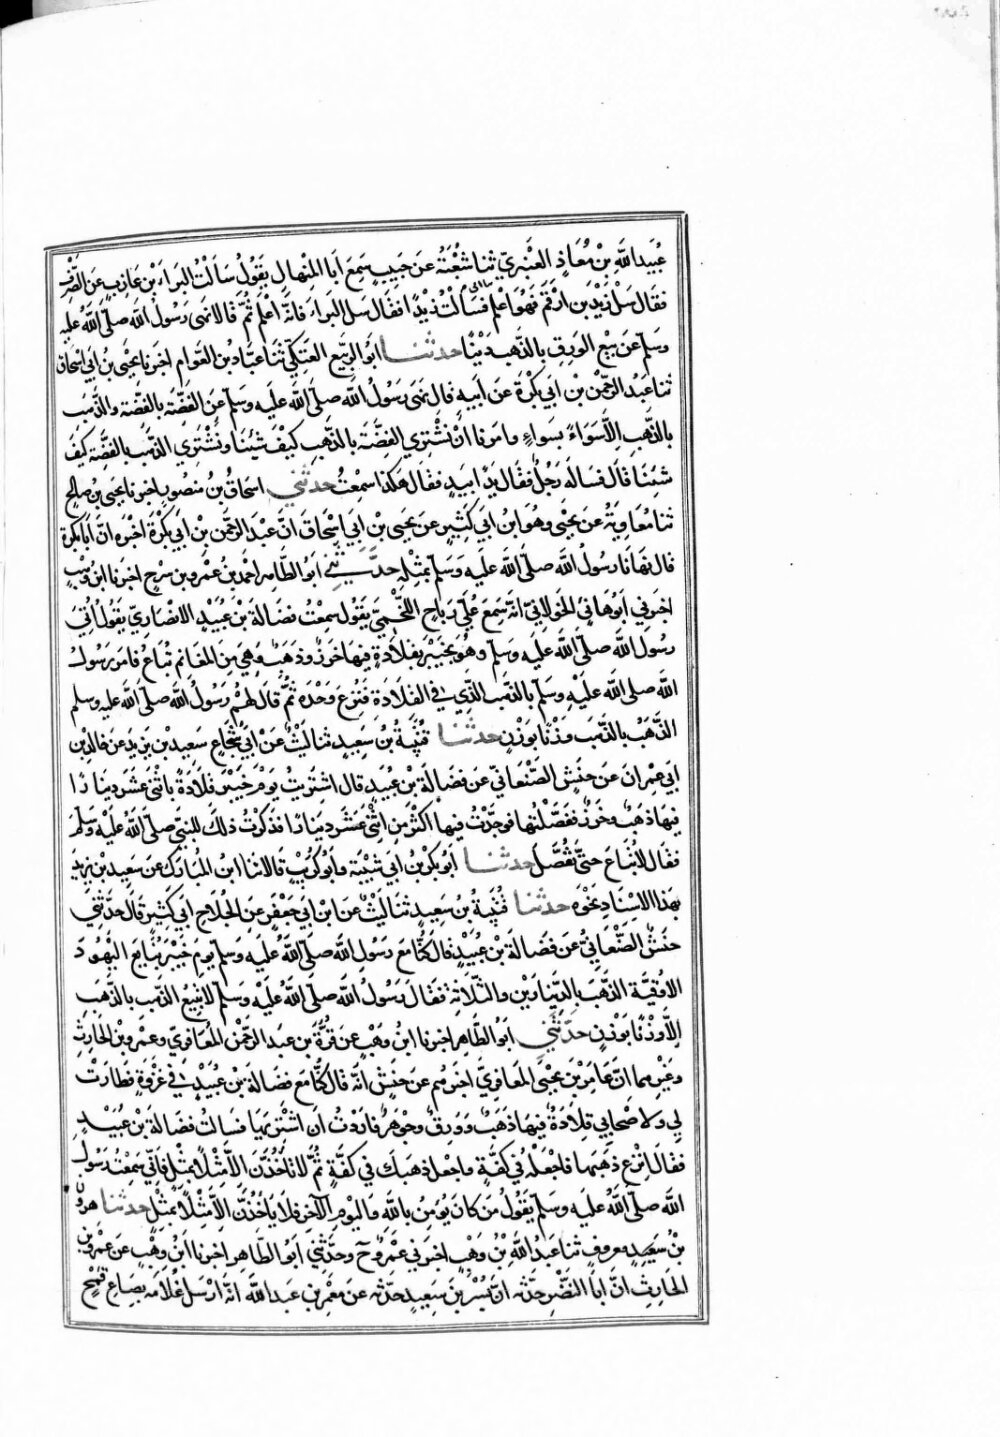 عُبَيدالله بْنُ مُعَاذٍ العَنْبَرِيّ ثنا شُعْبَةُ عَن حَبِيبٍ سَمِعَ اَبا المِنْهالِ يَقُولُ سَألْتُ البَراءَ بْنَ عازِبٍ عَنِ الصَّرْفِ
فقال سَلْ زَيْدَ بن ارْقَمَ فهُوَ اعْلم فسَألْتُ زيْدًا فقال سَلِ البراءَ فانَّهُ اَعْلَمُ ثمَّ قالا نهى رَسُول الله صلّى الله عليه
وسَلم عن بيع الوَرِق بالذَّهبِ دَيْنًا حدثنا ابُو الرَبيع العتكيّ ثنا عبّاد بن العَوام اخبرنا يحيى بن ابي اسْحاق
ثنا عبدُ الرحمٰن بْن ابي بَكْرَة عَن اَبيهِ قال نهَى رَسُولُ الله صلّى الله علَيه وسلّم عَن الفِضَّةِ بالفِضّة والذَّهبِ
بالذَّهَبِ اِلّا سَوَاءً بسَواءٍ وامَرنا انْ نَشْتَرِي الفِضَّة بالذَّهبِ كيْفَ شِئنا ونَشْتَرِي الذَّهبَ بالفِضَّةِ كيْفَ
شِئنا قال فسَالهُ رَجُلٌ فقال يَدًا بيَدٍ فقال هٰكذا سمِعْتُ حدثني اسحاقُ بن منصُورٍ اخبرنا يحيى بن صالح
ثنا مُعاوية عَن يَحْيى وهُوَ ابنُ ابي كَثِيرٍ عن يحيَى بْنِ ابي اسْحاق انّ عبد الرحمن بْن ابي بَكْرَة اخْبَره انّ ابا بكرة
قال نهانا رسُولُ الله صلّى الله عليه وَسَلم بمثْلِهِ حدَّثني ابو الطّاهِر احمد بن عَمْرِو بن سرْحٍ اخبرنا ابن وَهْبٍ
اخبَرني ابُو هانِئٍ الخَولانيّ انّهُ سَمِعَ عُلَيّ بن رَباحٍ اللَّخْمِيّ يَقُول سمِعْتُ فضالةَ بْن عُبَيْدٍ الانصاريّ يقُولُ اُتِيَ
رسُولُ الله صلّى الله عليه وسَلّم وهُو بخَيْبَر بقِلادَةٍ فيها خَرَزٌ وذهَبٌ وهِيَ مِنَ المغانِم تُبَاعُ فامَر رَسُولُ
الله صلى الله علَيْهِ وَسَلّم بالذَّهب الّذِي في القِلادَةِ فنُزِعَ وَحْدَهُ ثمّ قال لهُمْ رَسُولُ الله صلّى الله عليه وسلم
الذَّهَبُ بالذَّهبِ وَزْنًا بوَزْنٍ حدثنا قُتَيْبَةُ بنُ سَعِيدٍ ثنا ليْثٌ عَنْ ابي شُجاعٍ سَعِيد بْنِ يزيد عَن خالد بْن
ابي عِمْرانَ عَن حَنَشٍ الصَّنْعانيّ عَن فضالَة بْنِ عُبَيدٍ قال اشْتَرَيتُ يَوْمَ خَيْبَر قِلادَةً باثنَي عَشَرَ دينارًا
فيها ذهَبٌ وخَرَزٌ ففَصَّلْتُها فوجَدْتُ فيها اكْثَرَ مِن اثْنَي عَشَرَ دينارًا فذكَرْتُ ذٰلِكَ للنبيّ صلّى الله علَيْه وسَلّم
فقال لا تُباعُ حتّى تُفَصَّلَ حدثنا ابُو بكر بن ابي شَيْبَة وابُو كُرَيْبٍ قالا ثنا ابنُ المبارك عَن سَعِيد بن يزيد
بهٰذا الاِسْنادِ نحْوَهُ حدثنا قُتَيْبةُ بن سَعِيدٍ ثنا ليْثٌ عَن ابنِ ابي جَعْفَرٍ عَنِ الجُلَاحِ ابي كثِيرٍ قال حدّثني
حَنَشٌ الصَّنْعانِيُّ عَن فضالَة بْن عُبَيْدٍ قال كُنّا مَعَ رسُولِ الله صلى الله عليه وسلّم يوم خَيْبَرَ نُبايعُ اليهُودَ
الاُوقِيَّةَ الذّهَبَ بالدِّيْنارَيْنِ والثَّلاثَةِ فقالَ رَسُولُ الله صلّى الله علَيْه وسَلّم لا تَبيعُوا الذَّهَبَ بالذَّهَبِ
اِلّا وَزْنًا بوَزْنٍ حدّثني ابُو الطّاهِر اخبرنا ابْنُ وَهْبٍ عَن قُرَّةَ بن عبد الرّحمٰن المُعافرِيّ وعَمْرِو بْنِ الحارِثِ
وغَيْرِهِما انّ عامِرَ بْنَ يَحْيَى المعافريّ اخبرَهُم عَن حنَشٍ انّه قال كُنّا مَعَ فضالةَ بْنِ عُبَيْدٍ في غَزْوَةٍ فطارَتْ
لي ولاَصْحابي قِلادَةٌ فيها ذَهَبٌ ووَرِقٌ وجَوْهَرٌ فارَدْتُ ان اشْتَرِيَها فسَالتُ فضالة بْنَ عُبَيْدٍ
فقال انْزِعْ ذهَبَها فاجْعَلْهُ في كفَّةٍ واجعل ذهبك في كفَّةٍ ثُمَّ لا تاخُذَنَّ الّا مِثْلًا بمِثْلٍ فانّي سَمِعْتُ رَسُولَ
الله صلّى الله علَيه وسلّم يَقُولُ مَن كانَ يُومِنُ بالله واليَوْمِ الآخِرِ فلا يَاخُذَنَّ الّا مِثْلًا بمثْلٍ حدثنا هرُونُ
بْنُ سَعِيدٍ معروفٍ ثنا عبدُ الله بْنُ وَهْبٍ اخبرَني عَمْرٌو ح وحدّثَني ابُو الطّاهِرِ اخبرنا ابنُ وَهْبٍ عَن عَمْرِو بْنِ
الحارِثِ انّ ابا النَّضْرِ حدّثه انّ بُسْرَ بْنَ سَعِيدٍ حدّثه عن مَعْمَرِ بن عَبدالله انّهُ ارْسَلَ غُلامَهُ بصَاعِ قمْحٍ